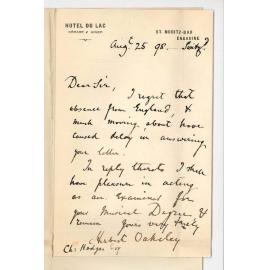 HOTEL DU LAC
ST. MORITZ-BAD
ENGADINE
Augt 25 98.
Dear Sir,
I regret that
absence from England, &
much moving about have
caused delay in answering
your letter.
In reply thereto I shall
have pleasure in acting
as an Examiner for
your Musical Degree &
remain Yours very truly
Herbert Oakeley
Ch: Hodges Esq